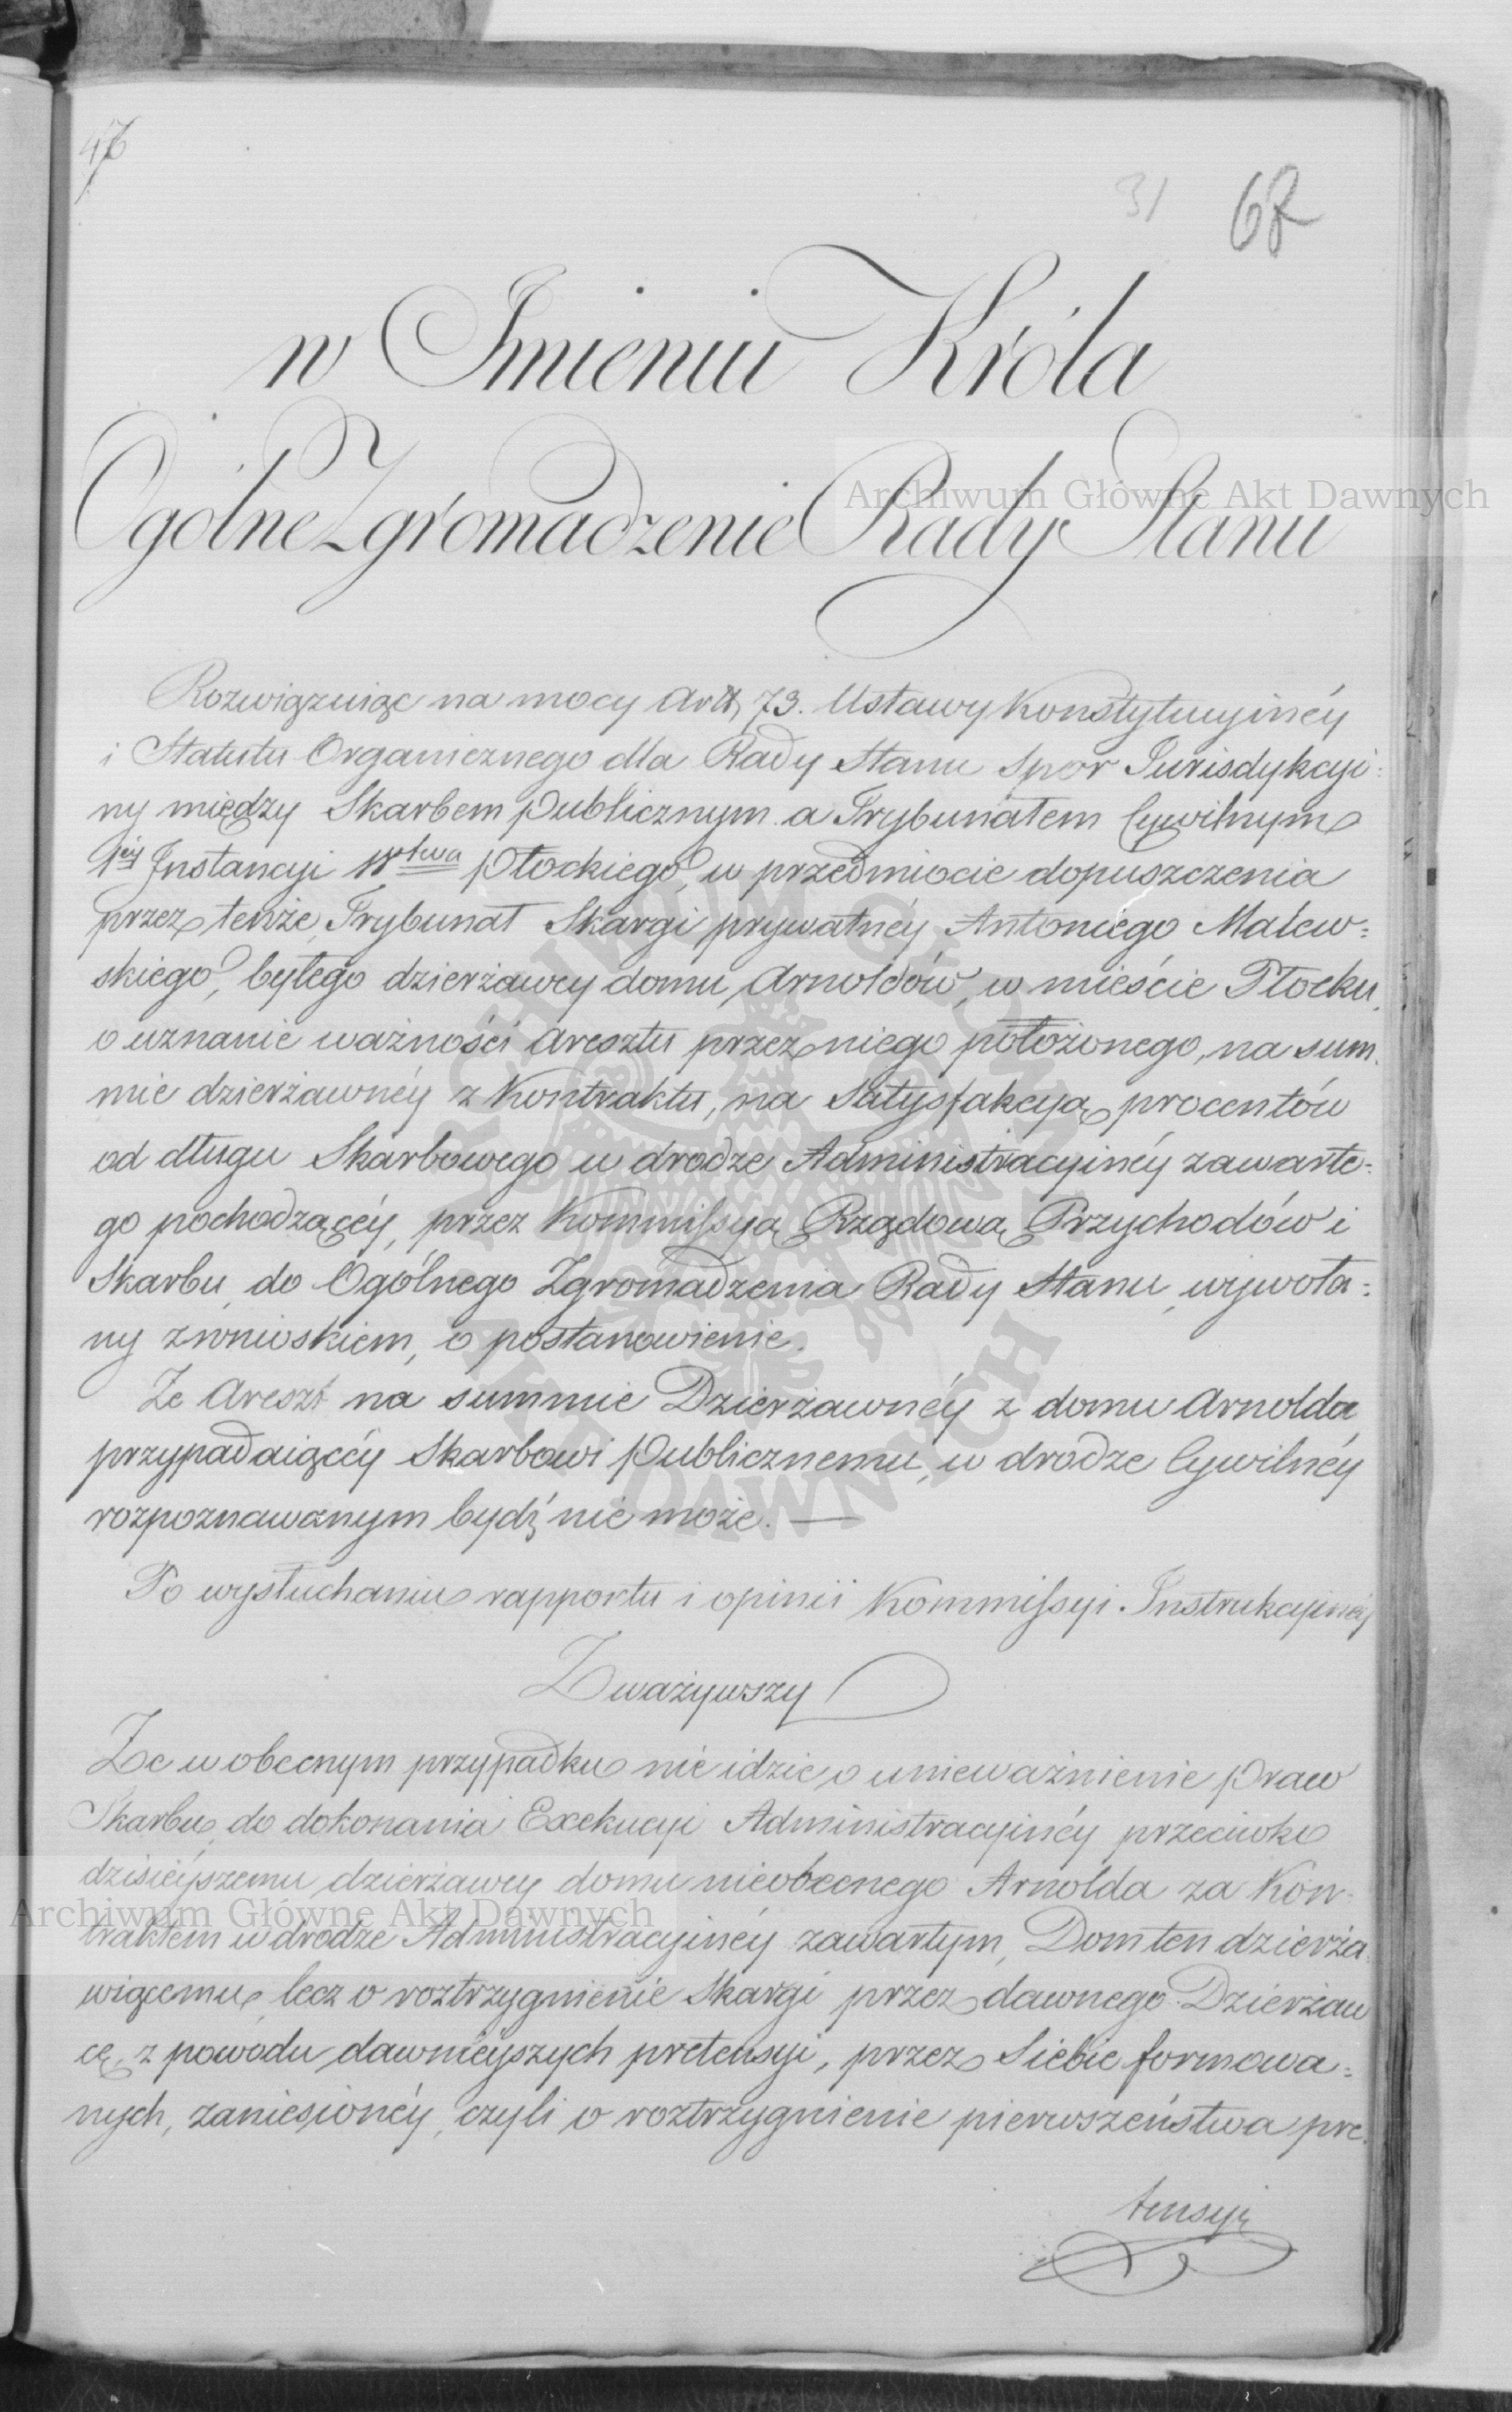 47
31
68
w Imieniu Króla
Ogólne Zgromadzenie Rady Stanu
Rozwiązuiąc na mocy Artt 73. Ustawy Konstytucyinéy
i Statutu Organicznego dla Rady Stanu Spor Jurisdykcyi=
ny między Skarbem publicznym a Trybunałem Cywilnym
1éy Instancyi Wotwa Płockiego, w przedmiocie dopuszczenia
przez tenże Trybunał Skargi prywatnéy Antoniego Malew=
skiego, byłego dzierżawcy domu Arnoldów, w mieście Płocku,
o uznanie ważności Aresztu przez niego położonego, na sum=
mie dzierżawnéy z Kontraktu, na Satysfakcyą procentów
od długu Skarbowego w drodze Administracyinéy zawarte=
go pochodzącéy, przez Kommissyą Rządową Przychodów i
Skarbu, do Ogólnego Zgromadzenia Rady Stanu, wywoła=
ny z wnioskiem, o postanowienie.
Że Areszt na summie Dzierżawnéy z domu Arnolda
przypadaiącéy Skarbowi publicznemu, w drodze Cywilnéy
rozpoznawanym bydź nie może. —
Po wysłuchaniu rapportu i opinii Kommissyi Instrukcyinéy
Zważywszy
Że w obecnym przypadku nie idzie o unieważnienie praw
Skarbu, do dokonania Exekucyi Administracyinéy przeciwko
dzisiéyszemu dzierżawcy domu nieobecnego Arnolda za Kon=
traktem w drodze Administracyinéy zawartym, Dom ten dzierża=
wiącemu, lecz o roztrzygnienie Skargi przez dawnego Dzierżaw
cę, z powodu dawniéyszych pretensyi, przez Siebie formowa=
nych, zaniesionéy, czyli o roztrzygnienie pierwszeństwa pre=
tensyi
Archiwum Główne Akt Dawnych
Archiwum Główne Akt Dawnych